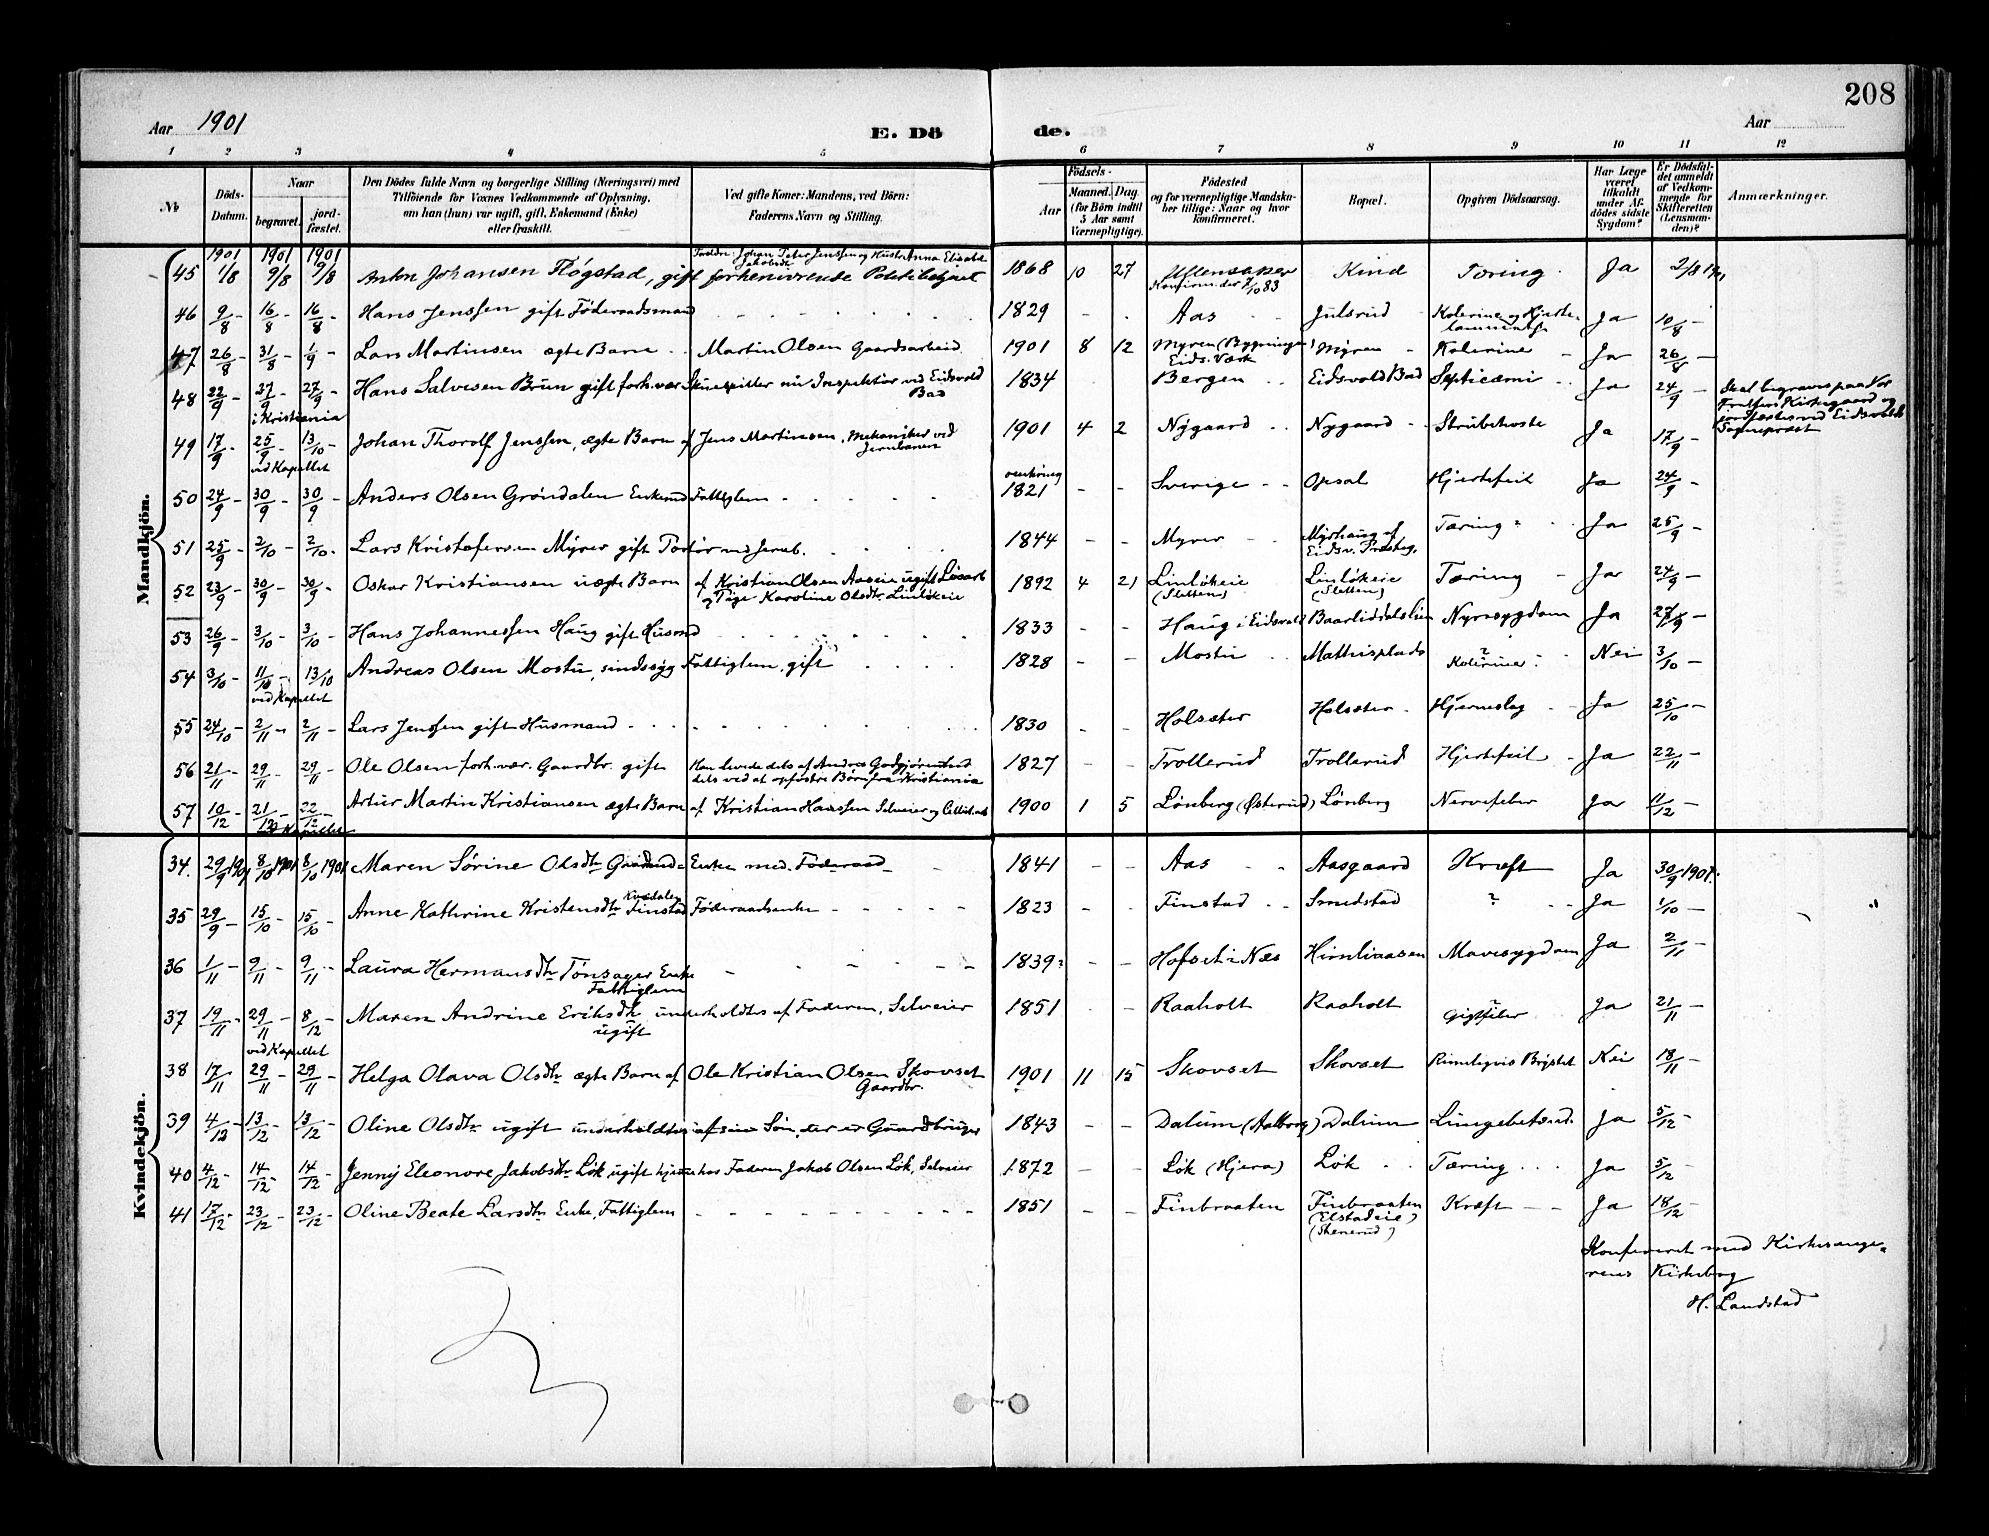 208
Aar 1901
E. Dö de.
Aar
1 2 3 4 5 6 7 8 9 10 11 12
No
Döds-Datum.
Naar
begravet.
jord-fæstet.
Den Dödes fulde Navn og borgerlige Stilling (Næringsvei) med
Tilföiende for Voxnes Vedkommende af Oplysning,
om han (hun) var ugift, gift, Enkemand (Enke)
eller fraskilt.
Ved gifte Koner: Mandens, ved Börn:
Faderens Navn og Stilling.
Födsels-
Aar
Maaned. Dag.
(for Börn indtil
5 Aar samt
Værnepligtige).
Födested
og for værnepligtige Mandska-
ber tillige: Naar og hvor
konfirmeret.
Bopæl.
Opgiven Dödsaarsag.
Har Læge
været
tilkaldt
under Af-
dödes sidste
Sygdom?
Er Dödsfal-
det anmeldt
af Vedkom-
mende for
Skifteretten
(Lensman-
den)?
Anmærkninger.
Mandkjön.
1901 1901 1901
45 1/8 9/8 9/8 Anton Johansen Flógstad, gift forhenværende Politibetjent 1868 10 27 Ullensaker Kind Tæring Ja 2/8 1901
Forældre Johan Peter Jenssen og Hustr. Anna Elisabet Jakobsdt
Konfirm. der 7/10 83
46 9/8 16/8 16/8 Hans Jenssen gift Föderaadsmand 1829 Aas Julsrud Kolerine og Hjerte- Ja 10/8
47 26/8 31/8 1/9 Lars Martinsen ægte Barn Martin Olsen Gaardsarbeid. 1901 8 12 Myren (Bygningen) Myren Kolerine Ja 26/8
Eids. Værk
48 22/9 27/9 27/9 Hans Salvesen Brun gift forh. vær. Skuespiller nu Inspektör ved Eidsvold Bad 1834 Bergen Eidsvold Bad Septicæmi Ja 24/9 Skal begraves paa Vor
i Kristiania
Frelsers Kirkegaard og
jordfæstes ved Eidsvolds
Sognepræst
49 17/9 25/9 13/10 Johan Thorolf Jenssen, ægte Barn af Jens Martinsen, Mekaniker ved Jernbanen 1901 4 2 Nygaard Nygaard Strubehoste Ja 17/9
ved Kapellet
50 24/9 30/9 30/9 Anders Olsen Gröndalen Enkemd Fattiglem omkring 1821 Sverige Opsal Hjertefeil Ja 24/9
51 25/9 2/10 2/10 Lars Kristofersen Myrer gift Portör ved Jernb. 1844 Myrer Myrhaug af Eidsv. Præsteg. Tæring? Ja 25/9
52 23/9 30/9 30/9 Oskar Kristiansen uægte Barn af Kristian Olsen Aaseie ugift Lösarb 1892 4 21 Linlökeie Linlökeie Tæring Ja 24/9
og Pige Karoline Olsdtr Linlökeie (Sletten) (Sletten)
53 26/9 3/10 3/10 Hans Johannessen Haug gift Husmd 1833 Haug i Eidsvold Baarliddalslien Nyresygdom Ja 27/9
54 3/10 11/10 13/10 Andreas Olsen Mostu, sindssyg Fattiglem, gift 1828 Mostu Mathisplads Kolerine? Nei 3/10
ved Kapellet
55 24/10 2/11 2/11 Lars Jenssen gift Husmand 1830 Holsæter Holsæter Hjerneslag Ja 25/10
56 21/11 29/11 29/11 Ole Olsen forh. vær. Gaardbr. gift Han levede dels af Andres Godgjörenhed 1827 Trollerud Trollerud Hjertefeil Ja 22/11
dels ved at opfostre Börn fra Kristiania
57 10/12 21/12 22/12 Artur Martin Kristiansen ægte Barn af Kristian Hanssen Selveier og 1900 1 5 Lönberg (Österud) Lönberg Nervefeber Ja 11/12
v Kapellet
Kvindekjön.
34. 29/9 1901 8/10 1901 8/10 1901 Maren Sörine Olsdtr Enke med Föderaad 1841 Aas Aasgaard Kræft Ja 30/9 1901.
35 29/9 15/10 15/10 Anne Kathrine Kristensdtr Finstad Föderaadsenke 1823 Finstad Smedstad ? Ja 1/10
36 1/11 9/11 9/11 Laura Hermansdtr Tönsager Enke 1839? Hofset i Næs Himliaasen Mavesygdom Ja 2/11
Fattiglem
37 19/11 29/11 8/12 Maren Andrine Eriksdtr underholdtes af Faderen, Selveier 1851 Raaholt Raaholt Gigtfeber? Ja 21/11
ved Kapellet ugift
38 17/11 29/11 29/11 Helga Olava Olsdtr ægte Barn af Ole Kristian Olsen Skovset 1901 11 15 Skovset Skovset Rimeligvis Brystet Nei 18/11
Gaardbr.
39 4/12 13/12 13/12 Oline Olsdtr ugift underholdtes af sin Sön, der er Gaardbruger 1843 Dalum (Aalborg) Dalum Lungebetænd. Ja 5/12
40 4/12 14/12 14/12 Jenny Eleonore Jakobsdtr Lök ugift hjemme hos Faderen Jakob Olsen Lök, Selveier 1872 Lök (Hjera) Lök Tæring Ja 5/12
41 17/12 23/12 23/12 Oline Beate Larsdtr Enke, Fattiglem 1851 Finbraaten Finbraaten Kræft Ja 18/12
(Elstadeie)
(Stenerud)
Konfereret med Kirkesange-
rens Kirkebog
H. Landstad